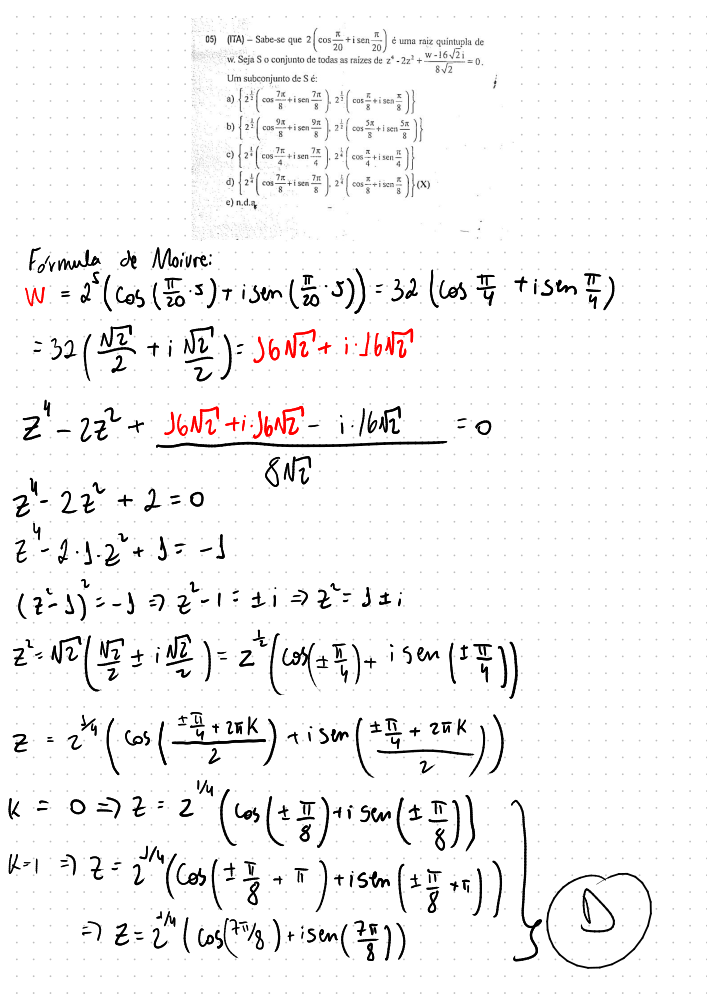 05) (ITA) – Sabe-se que 2(cos π/20 + i sen π/20) é uma raiz quíntupla de
w. Seja S o conjunto de todas as raízes de z⁴ - 2z² + (w - 16√2 i)/(8√2) = 0.
Um subconjunto de S é:
a) {2^(1/2)(cos 7π/8 + i sen 7π/8), 2^(1/2)(cos π/8 + i sen π/8)}
b) {2^(1/2)(cos 9π/8 + i sen 9π/8), 2^(1/2)(cos 5π/8 + i sen 5π/8)}
c) {2^(1/4)(cos 7π/4 + i sen 7π/4), 2^(1/4)(cos π/4 + i sen π/4)}
d) {2^(1/4)(cos 7π/8 + i sen 7π/8), 2^(1/4)(cos π/8 + i sen π/8)} (X)
e) n.d.a.
Fórmula de Moivre:
W = 2⁵(cos(π/20 · 5) + i sen(π/20 · 5)) = 32(cos π/4 + i sen π/4)
= 32(√2/2 + i √2/2) = 16√2 + i·16√2
z⁴ - 2z² + (16√2 + i·16√2 - i·16√2)/(8√2) = 0
z⁴ - 2z² + 2 = 0
z⁴ - 2·1·z² + 1 = -1
(z² - 1)² = -1 ⇒ z² - 1 = ± i ⇒ z² = 1 ± i
z² = √2(√2/2 ± i √2/2) = 2^(1/2)(cos(± π/4) + i sen(± π/4))
z = 2^(1/4)(cos((± π/4 + 2πK)/2) + i sen((± π/4 + 2πK)/2))
K = 0 ⇒ z = 2^(1/4)(cos(± π/8) + i sen(± π/8))
K=1 ⇒ z = 2^(1/4)(cos(± π/8 + π) + i sen(± π/8 + π))
⇒ z = 2^(1/4)(cos(7π/8) + i sen(7π/8))
D